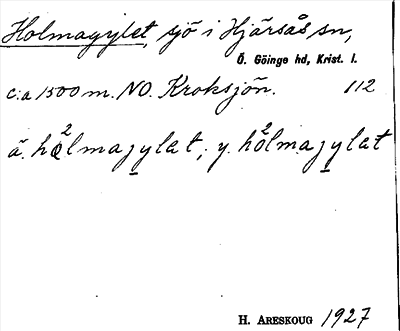 Holmagylet, sjö i Hjärsås sn,
Ö. Göinge hd, Krist. l.
c:a 1500 m. NO. Kroksjön. 112
ä. hølmagylat; y. hølmagylat
H. Areskoug 1927